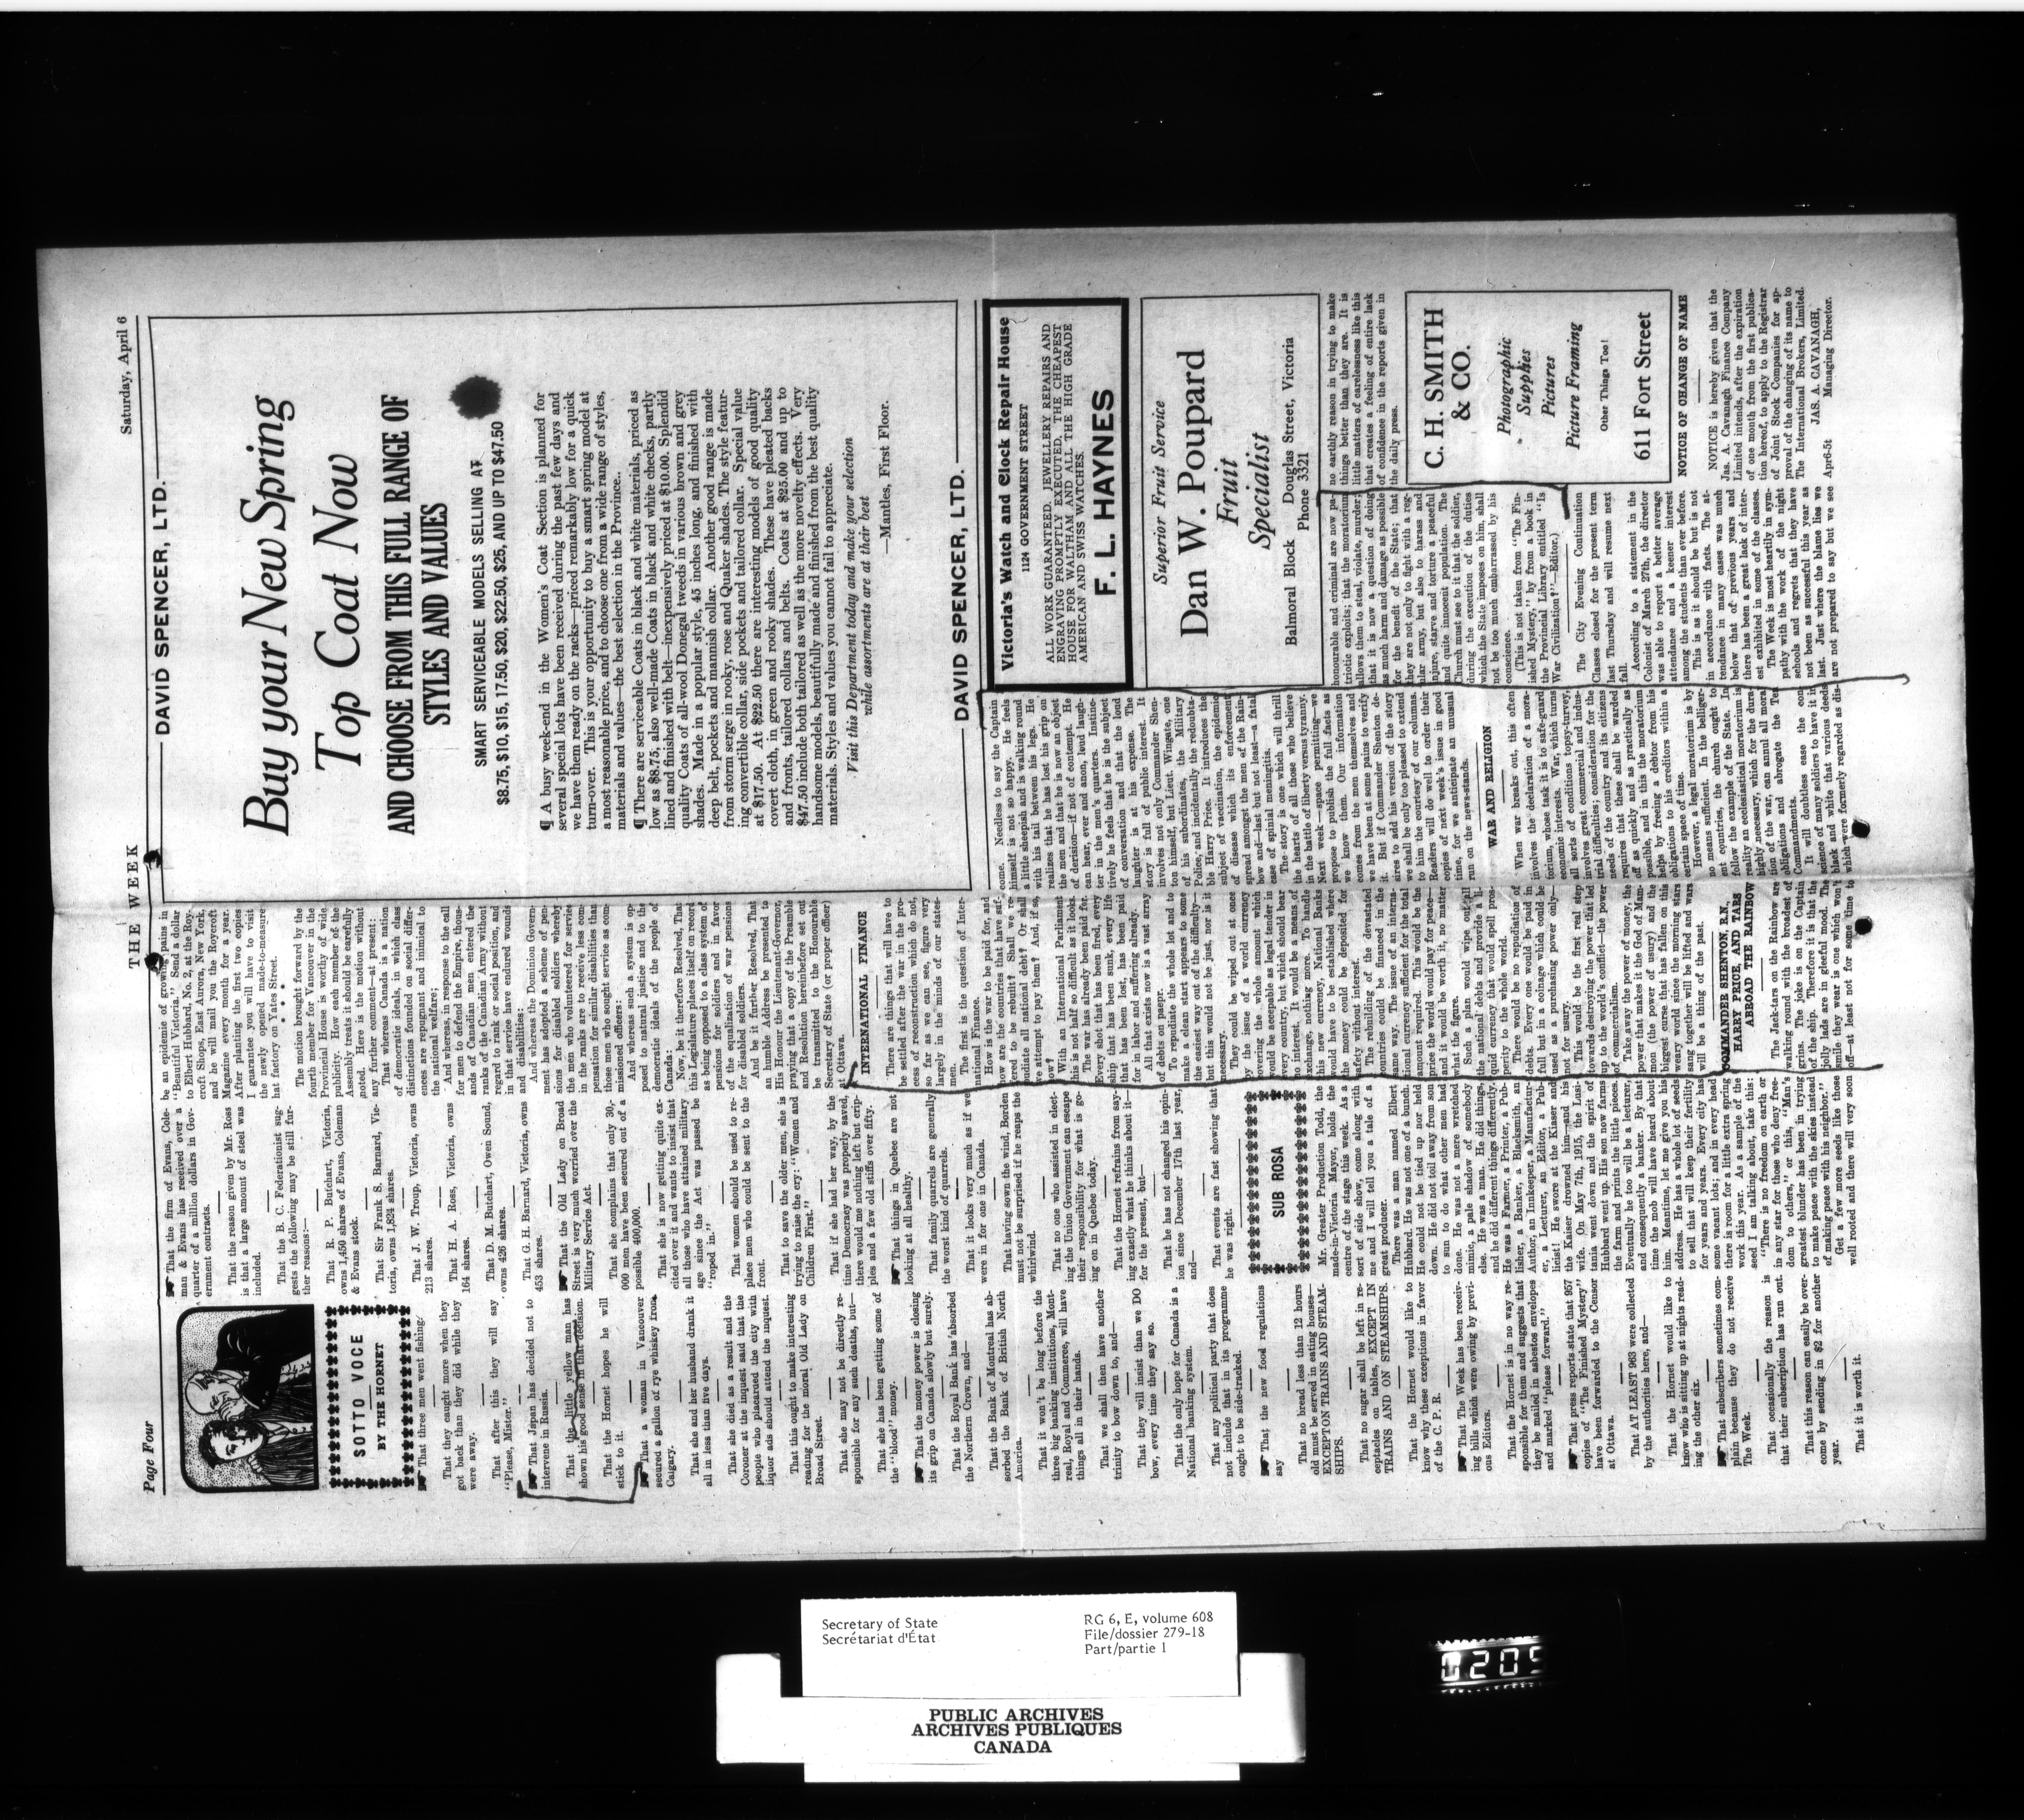 Page Four
THE WEEK
Saturday, April 6
SOTTO VOCE
BY THE HORNET
That three men went fishing.
That they caught more when they
got back than they did while they
were away.
That after this they will say
"Please, Mister."
That Japan has decided not to
intervene in Russia.
That the little yellow man has
shown his good sense in that decision.
That the Hornet hopes he will
stick to it.
That a woman in Vancouver
secured a gallon of rye whiskey from
Calgary.
That she and her husband drank it
all in less than five days.
That she died as a result and the
Coroner at the inquest said that the
people who placarded the city with
liquor ads should attend the inquest.
That this ought to make interesting
reading for the moral Old Lady on
Broad Street.
That she may not be directly re-
sponsible for any such deaths, but—
That she has been getting some of
the "blood" money.
That the money power is closing
its grip on Canada slowly but surely.
That the Royal Bank has absorbed
the Northern Crown, and—
That the Bank of Montreal has ab-
sorbed the Bank of British North
America.
That it won't be long before the
three big banking institutions, Mont-
real, Royal and Commerce, will have
all industry in their hands.
That we shall then have another
trinity to bow down to, and—
That they will insist than we DO
bow, every time they say so.
That the only hope for Canada is a
National banking system.
That any political party that does
not include that in its programme
ought to be side-tracked.
That the new food regulations
say
That no bread less than 12 hours
old must be served in eating houses—
EXCEPT ON TRAINS AND STEAM-
SHIPS.
That no sugar shall be left in re-
ceptacles on tables, EXCEPT IN
TRAINS AND ON STEAMSHIPS.
That the Hornet would like to
know why these exceptions in favor
of the C. P. R.
That The Week has been receiv-
ing bills which were owing by previ-
ous Editors.
That the Hornet is in no way re-
sponsible for them and suggests that
they be mailed in asbestos envelopes
and marked "please forward."
That press reports state that 957
copies of "The Finished Mystery"
have been forwarded to the Censor
at Ottawa.
That AT LEAST 963 were collected
by the authorities here, and—
That the Hornet would like to
know who is sitting up at nights read-
ing the other six.
That subscribers sometimes com-
plain because they do not receive
The Week.
That occasionally the reason is
that their subscription has run out.
That this reason can easily be over-
come by sending in $2 for another
year.
That it is worth it.
That the firm of Evans, Cole-
man & Evans has received over a
quarter of a million dollars in Gov-
ernment contracts.
That the reason given by Mr. Ross
is that a large amount of steel was
included.
That the B. C. Federationist sug-
gests the following may be still fur-
ther reasons:—
That R. P. Butchart, Victoria,
owns 1,450 shares of Evans, Coleman
& Evans stock.
That Sir Frank S. Barnard, Vic-
toria, owns 1,824 shares.
That J. W. Troup, Victoria, owns
213 shares.
That H. A. Ross, Victoria, owns
164 shares.
That D. M. Butchart, Owen Sound,
owns 426 shares.
That G. H. Barnard, Victoria, owns
453 shares.
That the Old Lady on Broad
Street is very much worried over the
Military Service Act.
That she complains that only 30,-
000 men have been secured out of a
possible 400,000.
That she is now getting quite ex-
cited over it and wants to insist that
all those who have attained military
age since the Act was passed be
"roped in."
That women should be used to re-
place men who could be sent to the
front.
That to save the older men, she is
trying to raise the cry: "Women and
Children First."
That if she had her way, by the
time Democracy was properly saved,
there would me nothing left but crip-
ples and a few old stiffs over fifty.
That things in Quebec are not
looking at all healthy.
That family quarrels are generally
the worst kind of quarrels.
That it looks very much as if we
were in for one in Canada.
That having sown the wind, Borden
must not be surprised if he reaps the
whirlwind.
That no one who assisted in elect-
ing the Union Government can escape
their responsibility for what is go-
ing on in Quebec today.
That the Hornet refrains from say-
ing exactly what he thinks about it—
for the present, but—
That he has not changed his opin-
ion since December 17th last year,
and—
That events are fast showing that
he was right.
SUB ROSA
Mr. Greater Production Todd, the
made-in-Victoria Mayor, holds the
centre of the stage this week. As a
sort of side show, come along with
me and I will tell you a tale of a
great producer.
There was a man named Elbert
Hubbard. He was not one of a bunch.
He could not be tied up nor held
down. He did not toil away from son
to sun to do what other men had
done. He was not a mere wretched
mimic, a pale shadow of somebody
else. He was a man. He did things,
and he did different things differently.
He was a Farmer, a Printer, a Pub-
lisher, a Banker, a Blacksmith, an
Author, an Innkeeper, a Manufactur-
er, a Lecturer, an Editor, a Pub-
licist! He swore at the Kaiser and
the Kaiser drowned him—and his
wife. On May 7th, 1915, the Lusi-
tania went down and the spirit of
Hubbard went up. His son now farms
the farm and prints the little pieces.
Eventually he too will be a lecturer,
and consequently a banker. By that
time the mob will have heard about
him. Meantime, let me give you his
address. He has a whole lot of seeds
to sell that will keep their fertility
for years and years. Every city has
some vacant lots; and in every head
there is room for a little extra spring
work this year. As a sample of the
seed I am talking about, take this:
There is no freedom on earth or
in any star for those who deny free-
dom to others," or this, "Man's
greatest blunder has been in trying
to make peace with the skies instead
of making peace with his neighbor."
Get a few more seeds like those
well rooted and there will very soon
be an epidemic of growing pains in
"Beautiful Victoria." Send a dollar
to Elbert Hubbard. No. 2, at the Roy-
croft Shops, East Aurora, New York,
and he will mail you the Roycroft
Magazine every month for a year.
After planting the first two copies
I guarantee you will have to visit
the newly opened made-to-measure
hat factory on Yates Street.
* * * *
The motion brought forward by the
fourth member for Vancouver in the
Provincial House is worthy of wide
publicity. How each member of the
Assembly treats it should be carefully
noted. Here is the motion without
any further comment—at present:
That whereas Canada is a nation
of democratic ideals, in which class
distinctions founded on social differ-
ences are repugnant and inimical to
the national welfare;
And whereas, in response to the call
for men to defend the Empire, thous-
ands of Canadian men entered the
ranks of the Canadian Army without
regard to rank or social position, and
in that service have endured wounds
and disabilities:
And whereas the Dominion Govern-
ment has adopted a scheme of pen-
sions for disabled soldiers whereby
the men who volunteered for service
in the ranks are to receive less com-
pensation for similar disabilities than
those men who sought service as com-
missioned officers:
And whereas such a system is op-
posed to natural justice and to the
democratic ideals of the people of
Canada:
Now, be it therefore Resolved, That
this Legislature places itself on record
as being opposed to a class system of
pensions for soldiers and in favor
of the equalization of war pensions
for disabled soldiers.
And be it further Resolved, That
an humble Address be presented to
His Honour the Lieutenant-Governor,
praying that a copy of the Preamble
and Resolution hereinbefore set out
be transmitted to the Honourable
Secretary of State (or proper officer)
at Ottawa.
INTERNATIONAL FINANCE
There are things that will have to
be settled after the war in the pro-
cess of reconstruction which do not,
so far as we can see, figure very
largely in the minds of our states-
men.
The first is the question of Inter-
national Finance.
How is the war to be paid for, and
how are the countries that have suf-
fered to be rebuilt? Shall we re-
pudiate all national debt? Or shall
we attempt to pay them? And, if so,
how?
With an International Parliament
this is not half so difficult as it looks.
The war has already been paid for.
Every shot that has been fired, every
ship that has been sunk, every life
that has been lost, has been paid
for in labor and suffering already.
All that exists now is a vast array
of debts on paper.
To repudiate the whole lot and to
make a clean start appears to some
the easiest way out of the difficulty—
but this would not be just, nor is it
necessary.
They could be wiped out at once
by the issue of a world currency
covering the whole amount which
would be acceptable as legal tender in
every country, but which should bear
no interest. It would be a means of
exchange, nothing more. To handle
this new currency, National Banks
would have to be established where
the money could be deposited for
safety without interest.
The rebuilding of the devastated
countries could be financed in the
same way. The issue of an interna-
tional currency sufficient for the total
amount required. This would be the
price the world would pay for peace—
and it would be worth it, no matter
what the figure.
Such a plan would wipe out all
the national debts and provide a li-
quid currency that would spell pros-
perity to the whole world.
There would be no repudiation of
debts. Every one would be paid in
full but in a coinage which could be
used as a purchasing power only—
not for usury.
This would be the first real step
towards destroying the power that led
up to the world's conflict—the power
of commercialism.
Take away the power of money, the
power that makes it the God of Mam-
mon (the power of usury) and the
biggest curse that has fallen on this
weary world since the morning stars
sang together will be lifted and wars
will be a thing of the past.
COMMANDER SHENTON, R.N.
HARRY PRICE, AND TARS
ABROAD THE RAINBOW
The Jack-tars on the Rainbow are
walking round with the broadest of
grins. The joke is on the Captain
of the ship. Therefore it is that the
jolly lads are in gleeful mood. The
smile they wear is one which won't
off—at least not for some time to
come. Needless to say the Captain
himself is not so happy. He feels
a little sheepish and is walking round
with his tail between his legs. He
realizes that he has lost his grip on
the men and that he is now an object
of derision—if not of contempt. He
can hear, ever and anon, loud laugh-
ter in the men's quarters. Instinc-
tively he feels that he is the subject
of conversation and that the loud
laughter is at his expense. The
story is full of public interest. It
involves not only Commander Shen-
ton himself, but Lieut. Wingate, one
of his subordinates, the Military
Police, and incidentally the redoubta-
ble Harry Price. It introduces the
subject of vaccination, the epidemic
of disease which its enforcement
spread amongst the men of the Rain-
bow and—last but not least—a fatal
case of spinial meningitis.
The story is one which will thrill
the hearts of all those who believe
in the battle of liberty versus tyranny.
Next week—space permitting—we
propose to publish the full facts as
we know them. Our information
comes from the men themselves and
we have been at some pains to verify
it. But if Commander Shenton de-
sires to add his version of the story
we shall be only too pleased to extend
to him the courtesy of our columns.
Readers will do well to order their
copies of next week's issue in good
time, for we anticipate an unusual
run on the news-stands.
WAR AND RELIGION
When war breaks out, this often
involves the declaration of a mora-
torium, whose task it is to safe-guard
economic interests. War, which turns
all sorts of conditions topsy-turvey,
involves great commercial and indus-
trial difficulties; consideration for the
needs of the country and its citizens
requires that these shall be warded
off as quickly and as practically as
possible, and in this the moratorium
helps by freeing a debtor from his
obligations to his creditors within a
certain space of time.
However, a legal moratorium is by
no means sufficient. In the belliger-
ent countries, the church ought to
follow the example of the State. In
reality an ecclesiastical moratorium is
highly necessary, which for the dura-
tion of the war, can annul all moral
obligations and abrogate the Ten
Commandments.
It will doubtless ease the con-
science of many soldiers to have it in
black and white that various deeds
which were formerly regarded as dis-
honourable and criminal are now pa-
triotic exploits; that the morotrium
allows them to steal, violate, murder;
that it is now a question of doing
as much harm and damage as possible
for the benefit of the State; that
they are not only to fight with a reg-
ular army, but also to harass and
injure, starve and torture a peaceful
and quite innocent population. The
Church must see to it that the soldier,
during the execution of the duties
which the State imposes on him, shall
not be too much embarrassed by his
conscience.
(This is not taken from "The Fin-
ished Mystery," by from a book in
the Provincial Library entitled "Is
War Civilization?"—Editor.)
The City Evening Continuation
Classes closed for the present term
last Thursday and will resume next
fall.
According to a statement in the
Colonist of March 27th, the director
was able to report a better average
attendance and a keener interest
among the students than ever before.
This is as it should be but is not
in accordance with facts. The at-
tendance in many cases was much
below that of previous years and
there has been a great lack of inter-
est exhibited in some of the classes.
The Week is most heartily in sym-
pathy with the work of the night
schools and regrets that they have
not been as successful this year as
last. Just where the blame lies we
are not prepared to say but we see
no earthly reason in trying to make
things better than they are. It is
little matters of carelessness like this
that creates a feeling of entire lack
of confidence in the reports given in
the daily press.
DAVID SPENCER, LTD.
Buy your New Spring
Top Coat Now
AND CHOOSE FROM THIS FULL RANGE OF
STYLES AND VALUES
SMART SERVICEABLE MODELS SELLING AT
$8.75, $10, $15, 17.50, $20, $22.50, $25, AND UP TO $47.50
¶ A busy week-end in the Women's Coat Section is planned for
several special lots have been received during the past few days and
we have them ready on the racks—priced remarkably low for a quick
turn-over. This is your opportunity to buy a smart spring model at
a most reasonable price, and to choose one from a wide range of styles,
materials and values—the best selection in the Province.
¶ There are serviceable Coats in black and white materials, priced as
low as $8.75, also well-made Coats in black and white checks, partly
lined and finished with belt—inexpensively priced at $10.00. Splendid
quality Coats of all-wool Donegal tweeds in various brown and grey
shades. Made in a popular style, 45 inches long, and finished with
deep belt, pockets and mannish collar. Another good range is made
from storm serge in rooky, rose and Quaker shades. The style featur-
ing convertible collar, side pockets and tailored collar. Special value
at $17.50. At $22.50 there are interesting models of good quality
covert cloth, in green and rooky shades. These have pleated backs
and fronts, tailored collars and belts. Coats at $25.00 and up to
$47.50 include both tailored as well as the more novelty effects. Very
handsome models, beautifully made and finished from the best quality
materials. Styles and values you cannot fail to appreciate.
Visit this Department today and make your selection
while assortments are at their best
—Mantles, First Floor.
DAVID SPENCER, LTD.
Victoria's Watch and Clock Repair House
1124 GOVERNMENT STREET
ALL WORK GUARANTEED. JEWELLERY REPAIRS AND
ENGRAVING PROMPTLY EXECUTED. THE CHEAPEST
HOUSE FOR WALTHAM AND ALL THE HIGH GRADE
AMERICAN AND SWISS WATCHES.
F. L. HAYNES
Superior Fruit Service
Dan W. Poupard
Fruit
Specialist
Balmoral Block Douglas Street, Victoria
Phone 3321
C. H. SMITH
& CO.
Photographic
Supplies
Pictures
Picture Framing
Other Things Too!
611 Fort Street
NOTICE OF CHANGE OF NAME
NOTICE is hereby given that the
Jas. A. Cavanagh Finance Company
Limited intends, after the expiration
of one month from the first publica-
tion hereof, to apply to the Registrar
of Joint Stock Companies for ap-
proval of the changing of its name to
The International Brokers, Limited.
JAS. A. CAVANAGH,
Apr6-5t Managing Director.
Secretary of State
Secrétariat d'État
RG 6, E, volume 608
File/dossier 279-18
Part/partie 1
PUBLIC ARCHIVES
ARCHIVES PUBLIQUES
CANADA
0205